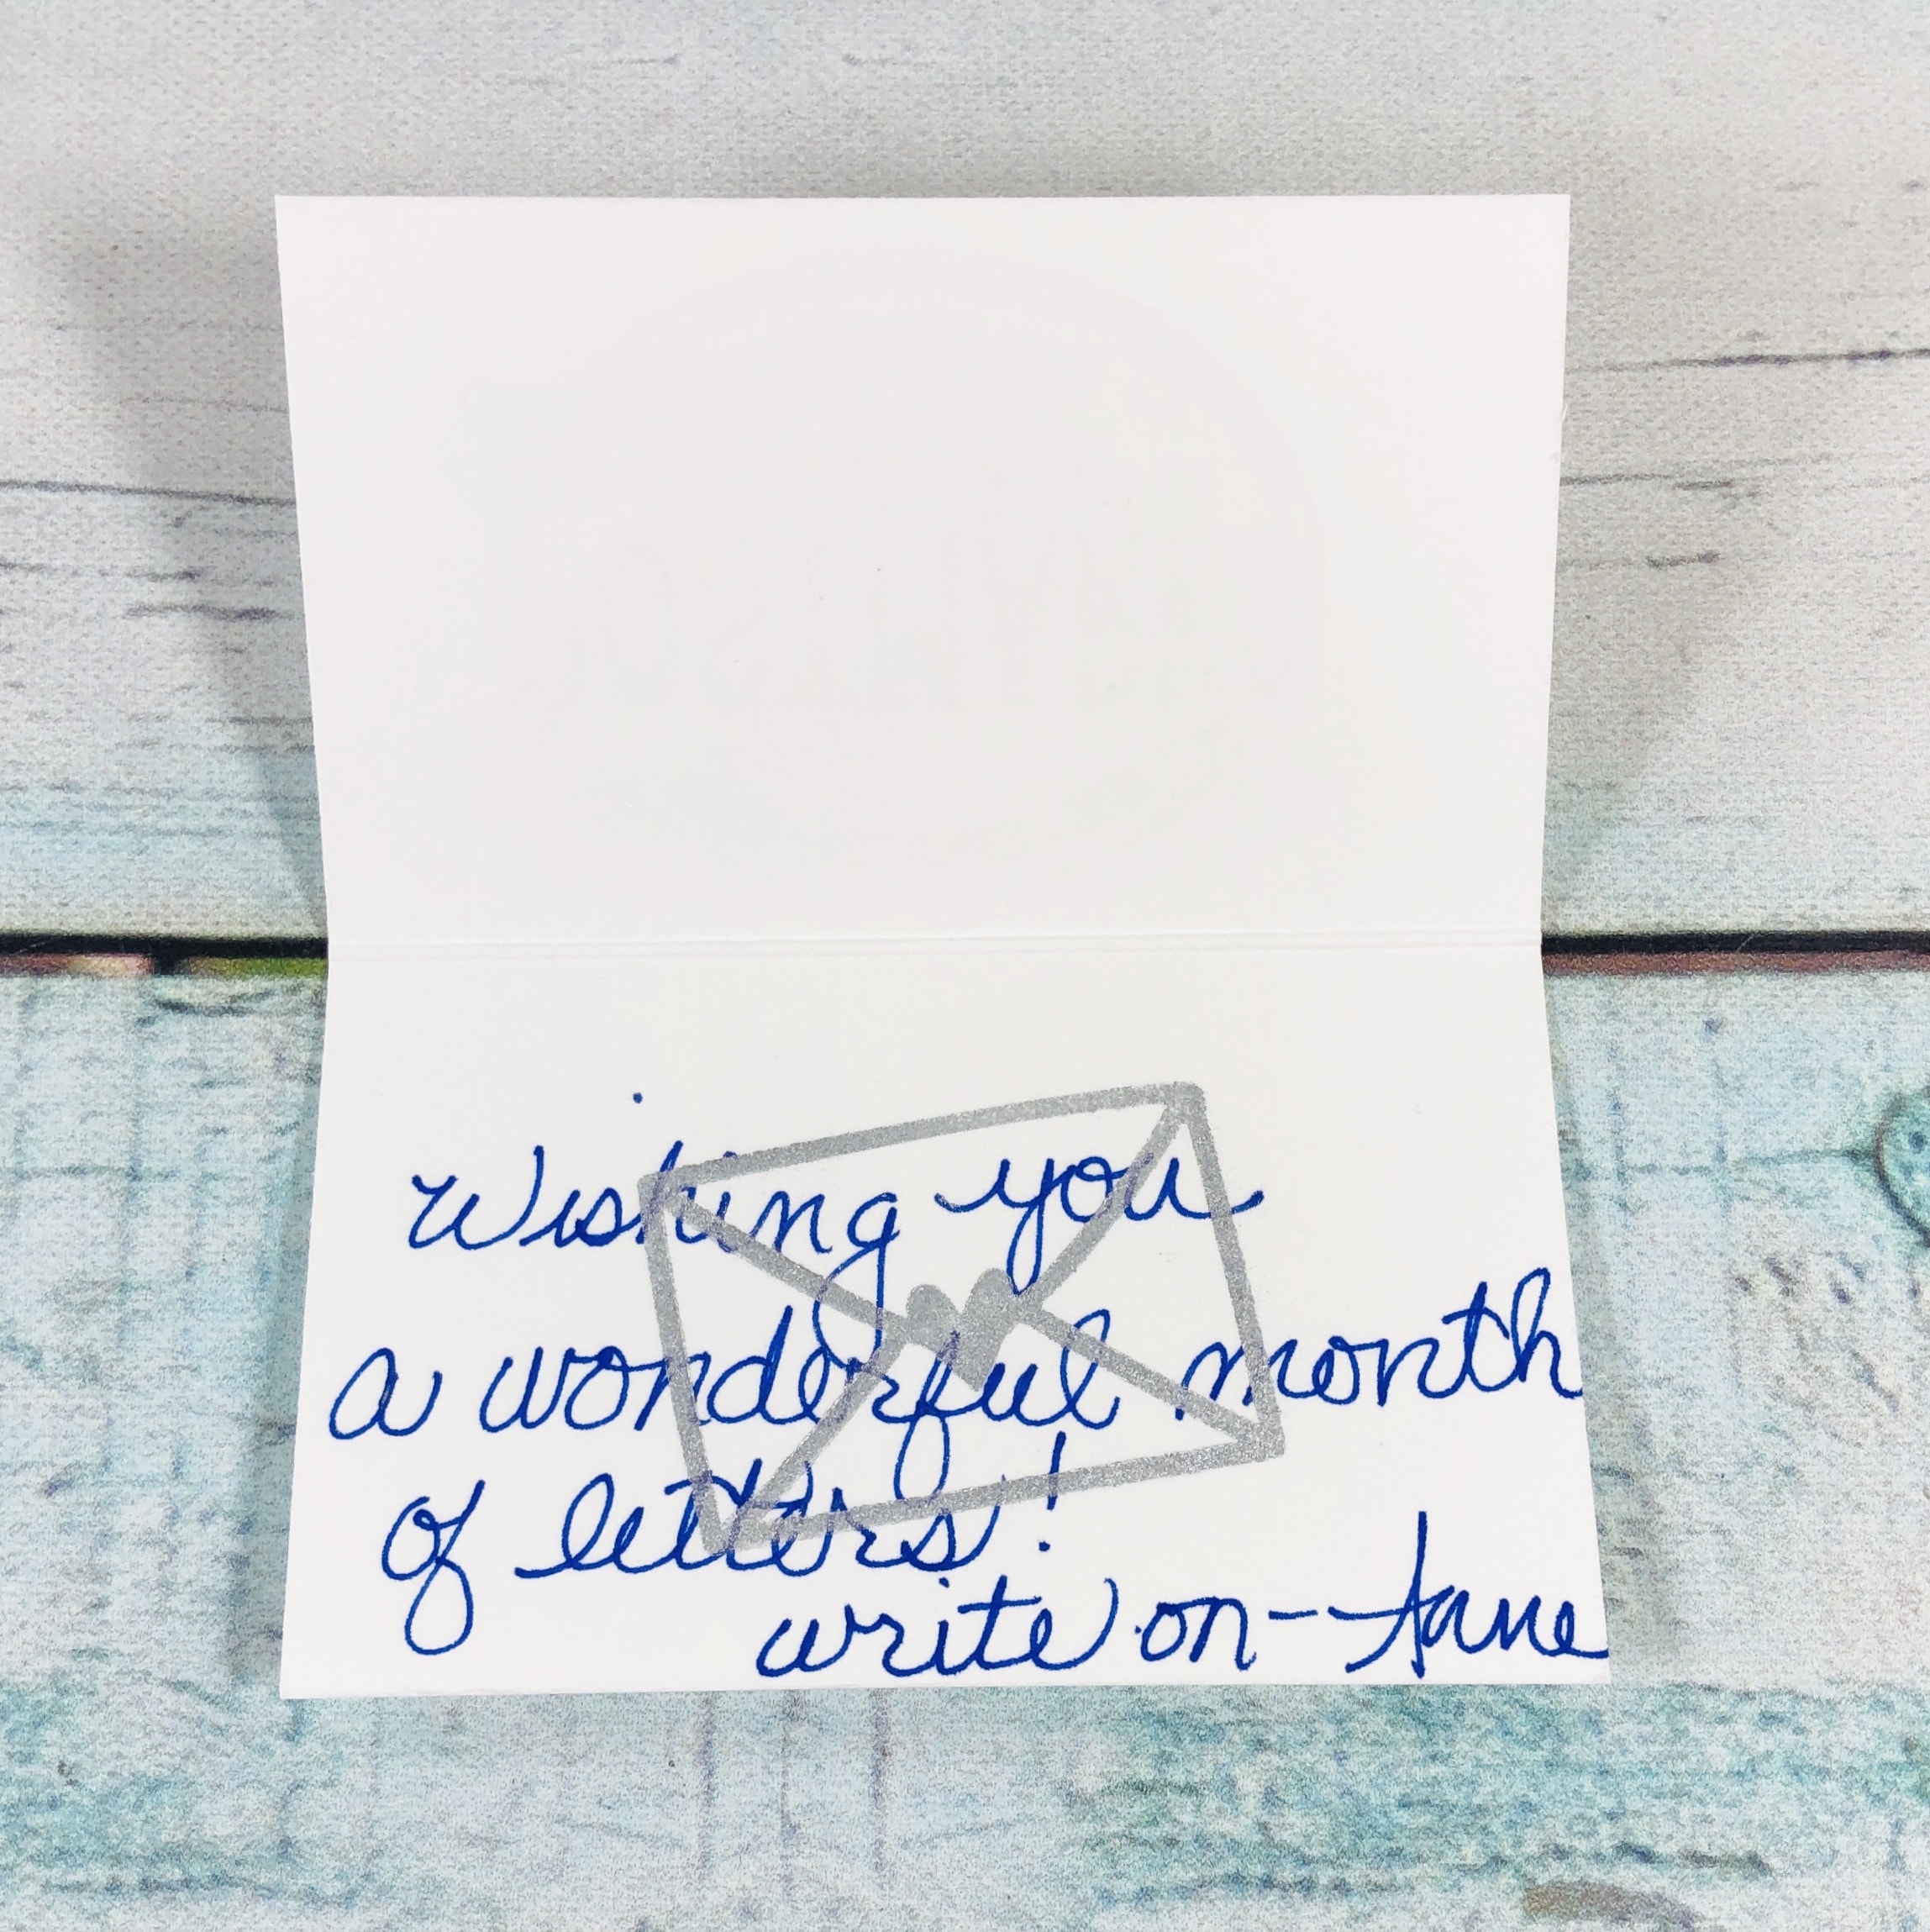 Wishing you
a wonderful month
of letters!
write on--